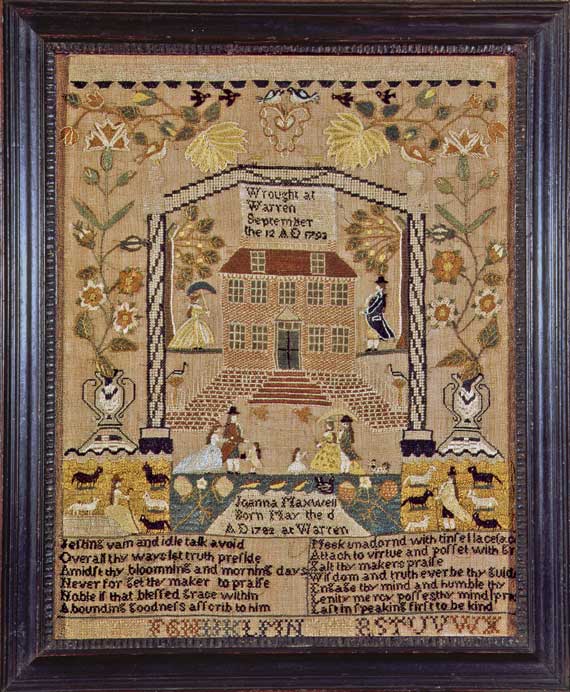 Wrought at
Warren
September
the 12 A D 1793
Joanna Maxwell
Born May the 6
A D 1782 at Warren
Jesting vain and idle talk avoid
Overall thy ways let truth preside
Amidst thy bloomning and morning days
Never for get thy maker to praise
Noble is that blessed grace within
Abounding goodness ascrib to him
Meek unadornd with tinsel lace
Attach to virtue and posset with
Exalt thy makers praise
Wisdom and truth ever be thy guid
Engage thy mind and humble thy
Lenity mercy posses thy mind
Last in speaking first to be kind
FGHIKLMN RSTUVWX